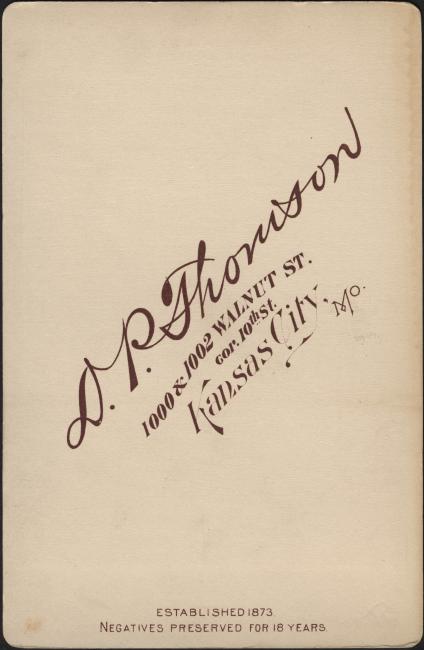 D. P. Thomson
1000 & 1002 WALNUT ST.
cor. 10th St.
Kansas City, Mo.
ESTABLISHED 1873.
NEGATIVES PRESERVED FOR 18 YEARS.